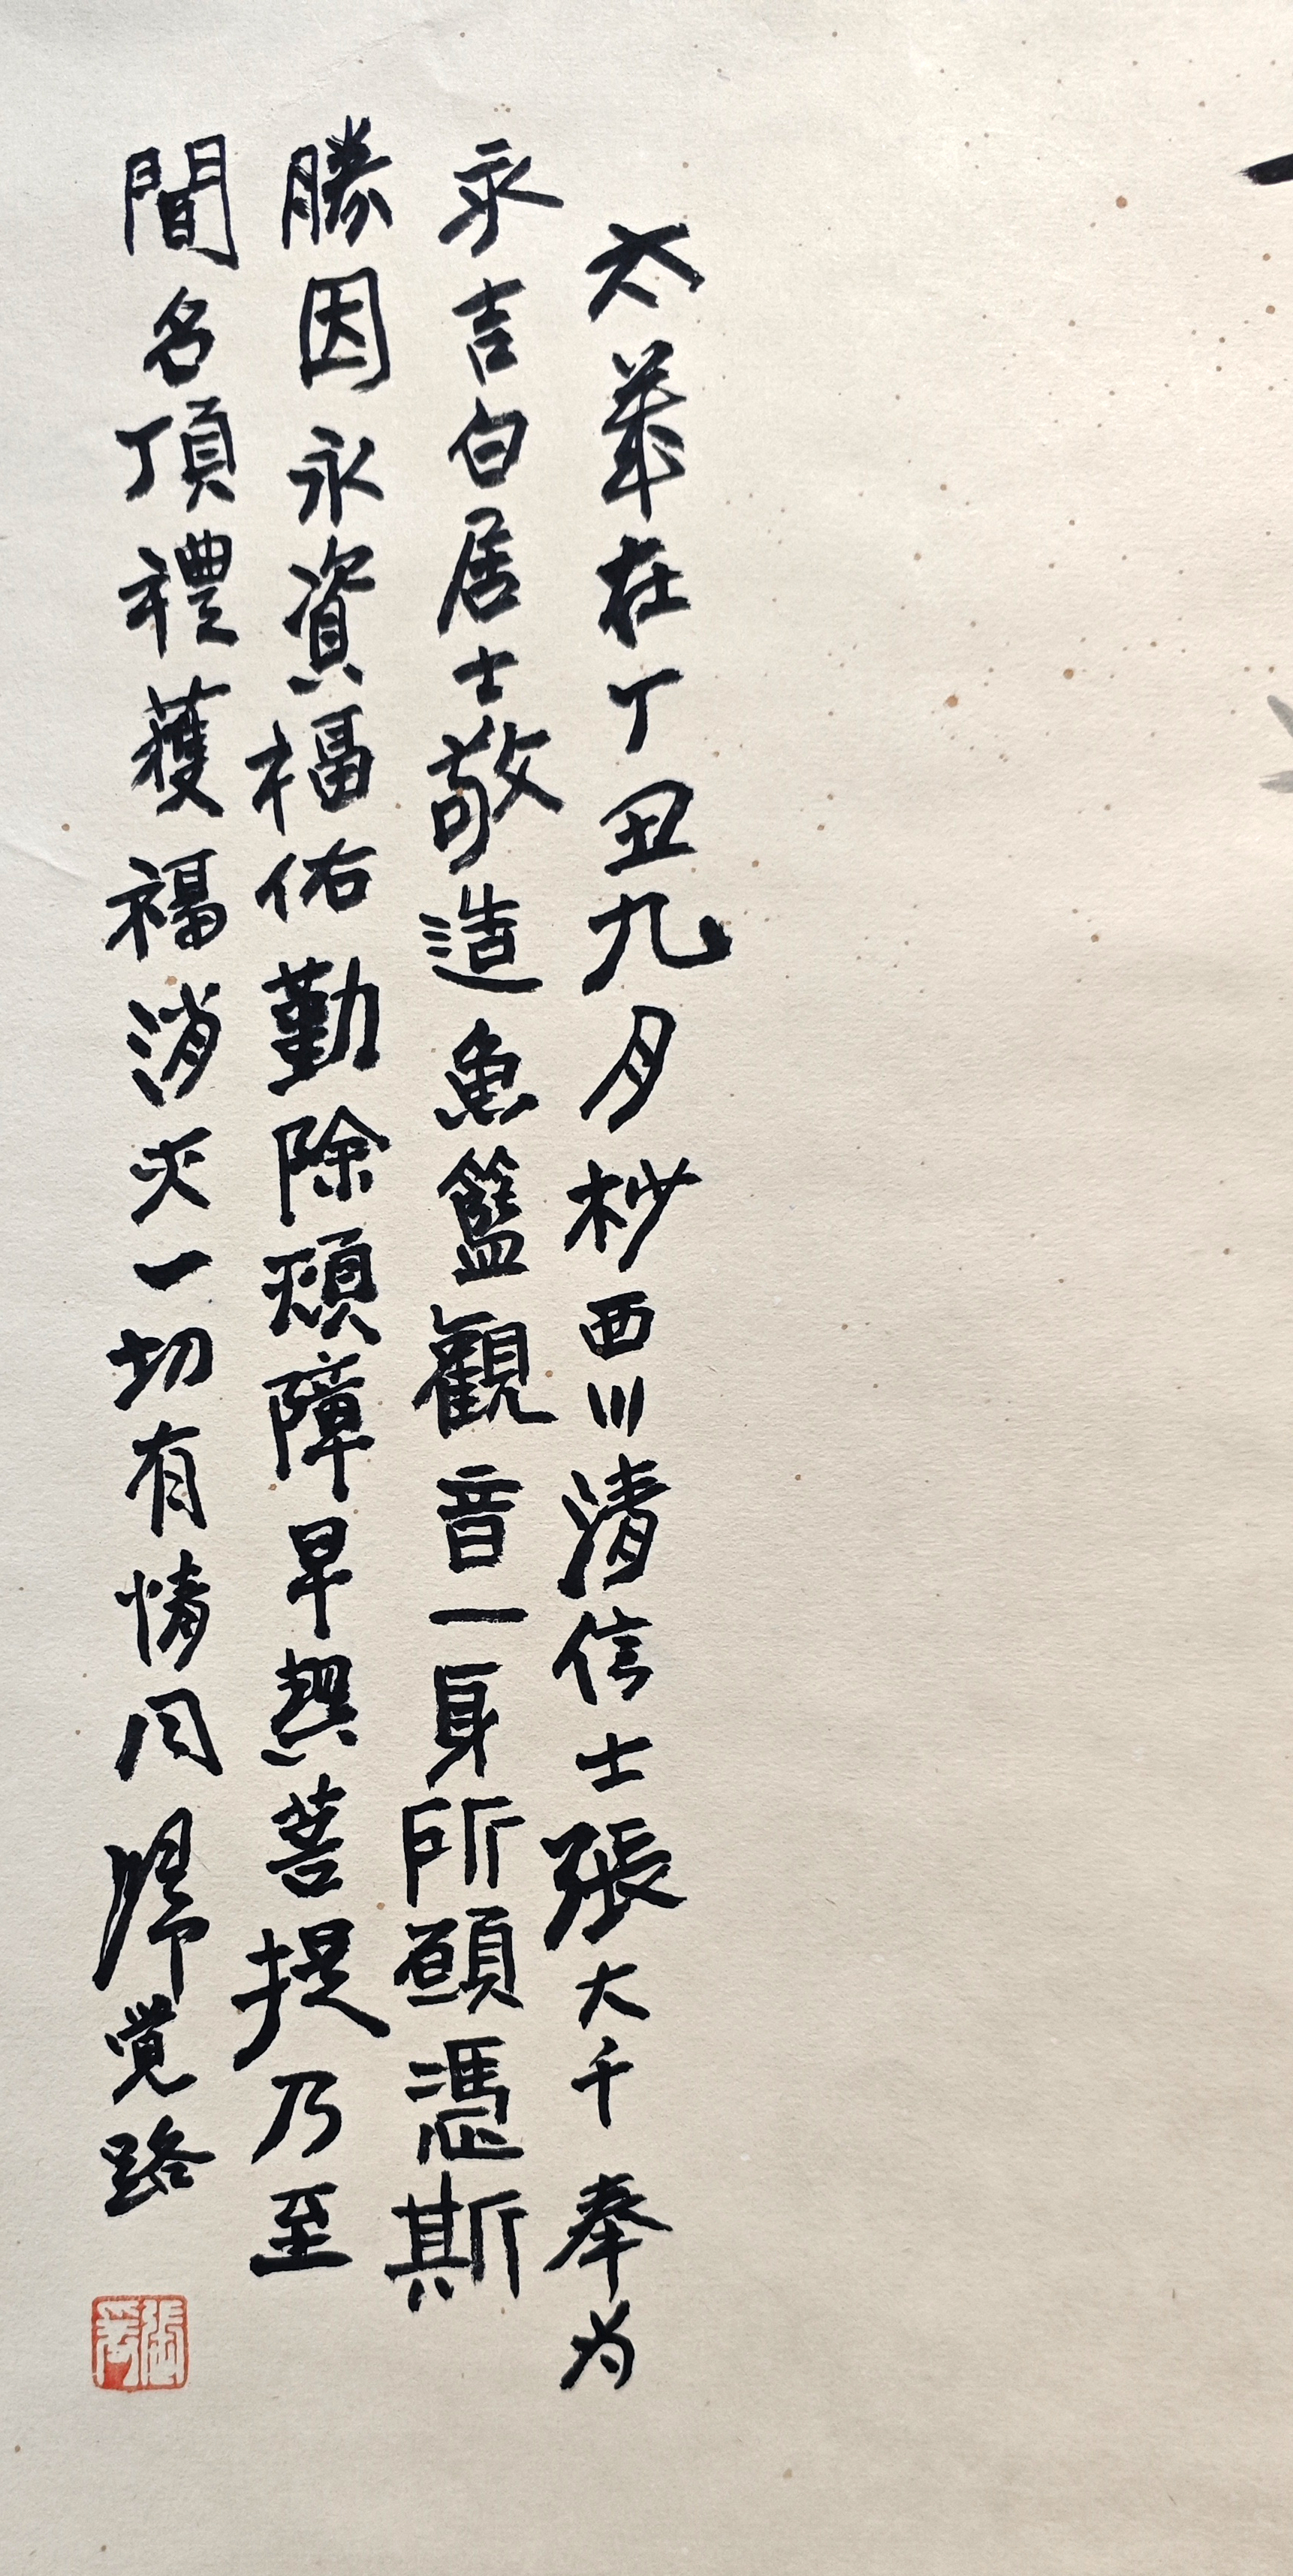 太歲在丁丑九月杪西川清信士張大千奉为
永吉白居士敬造魚籃觀音一身所願憑斯
勝因永資福佑勤除煩障早契菩提乃至
聞名頂禮獲福消灾一切有情同歸覚路
張爰